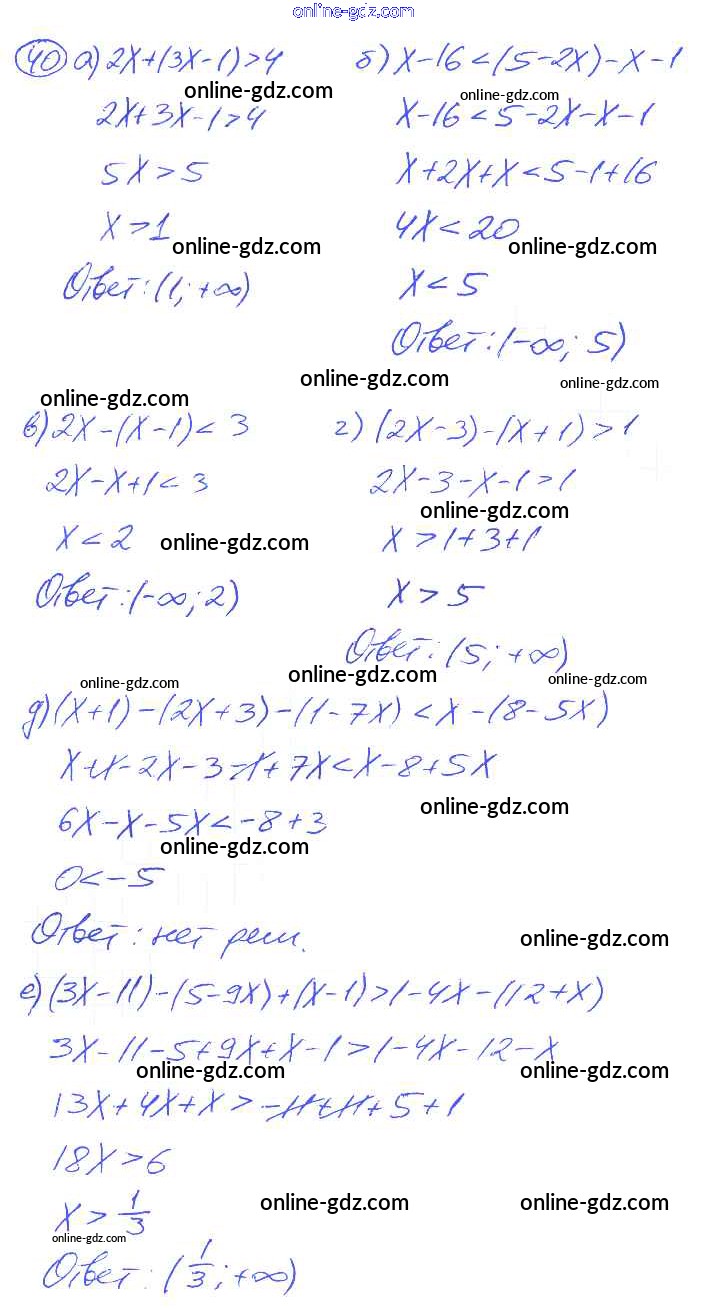 online-gdz.com
40 а) 2x+(3x-1)>4
online-gdz.com
2x+3x-1>4
5x>5
x>1
online-gdz.com
Ответ: (1; +∞)
б) x-16<(5-2x)-x-1
online-gdz.com
x-16<5-2x-x-1
x+2x+x<5-1+16
4x<20
online-gdz.com
x<5
Ответ: (-∞; 5)
online-gdz.com
online-gdz.com
online-gdz.com
в) 2x-(x-1)<3
2x-x+1<3
x<2
online-gdz.com
Ответ: (-∞; 2)
г) (2x-3)-(x+1)>1
2x-3-x-1>1
online-gdz.com
x>1+3+1
x>5
Ответ: (5; +∞)
online-gdz.com
online-gdz.com
online-gdz.com
д) (x+1)-(2x+3)-(1-7x)<x-(8-5x)
x+1-2x-3-1+7x<x-8+5x
online-gdz.com
6x-x-5x<-8+3
online-gdz.com
0<-5
Ответ: нет реш.
online-gdz.com
е) (3x-11)-(5-9x)+(x-1)>1-4x-(12+x)
3x-11-5+9x+x-1>1-4x-12-x
online-gdz.com
online-gdz.com
13x+4x+x>-11+11+5+1
18x>6
x>1/3
online-gdz.com
online-gdz.com
online-gdz.com
Ответ: (1/3; +∞)